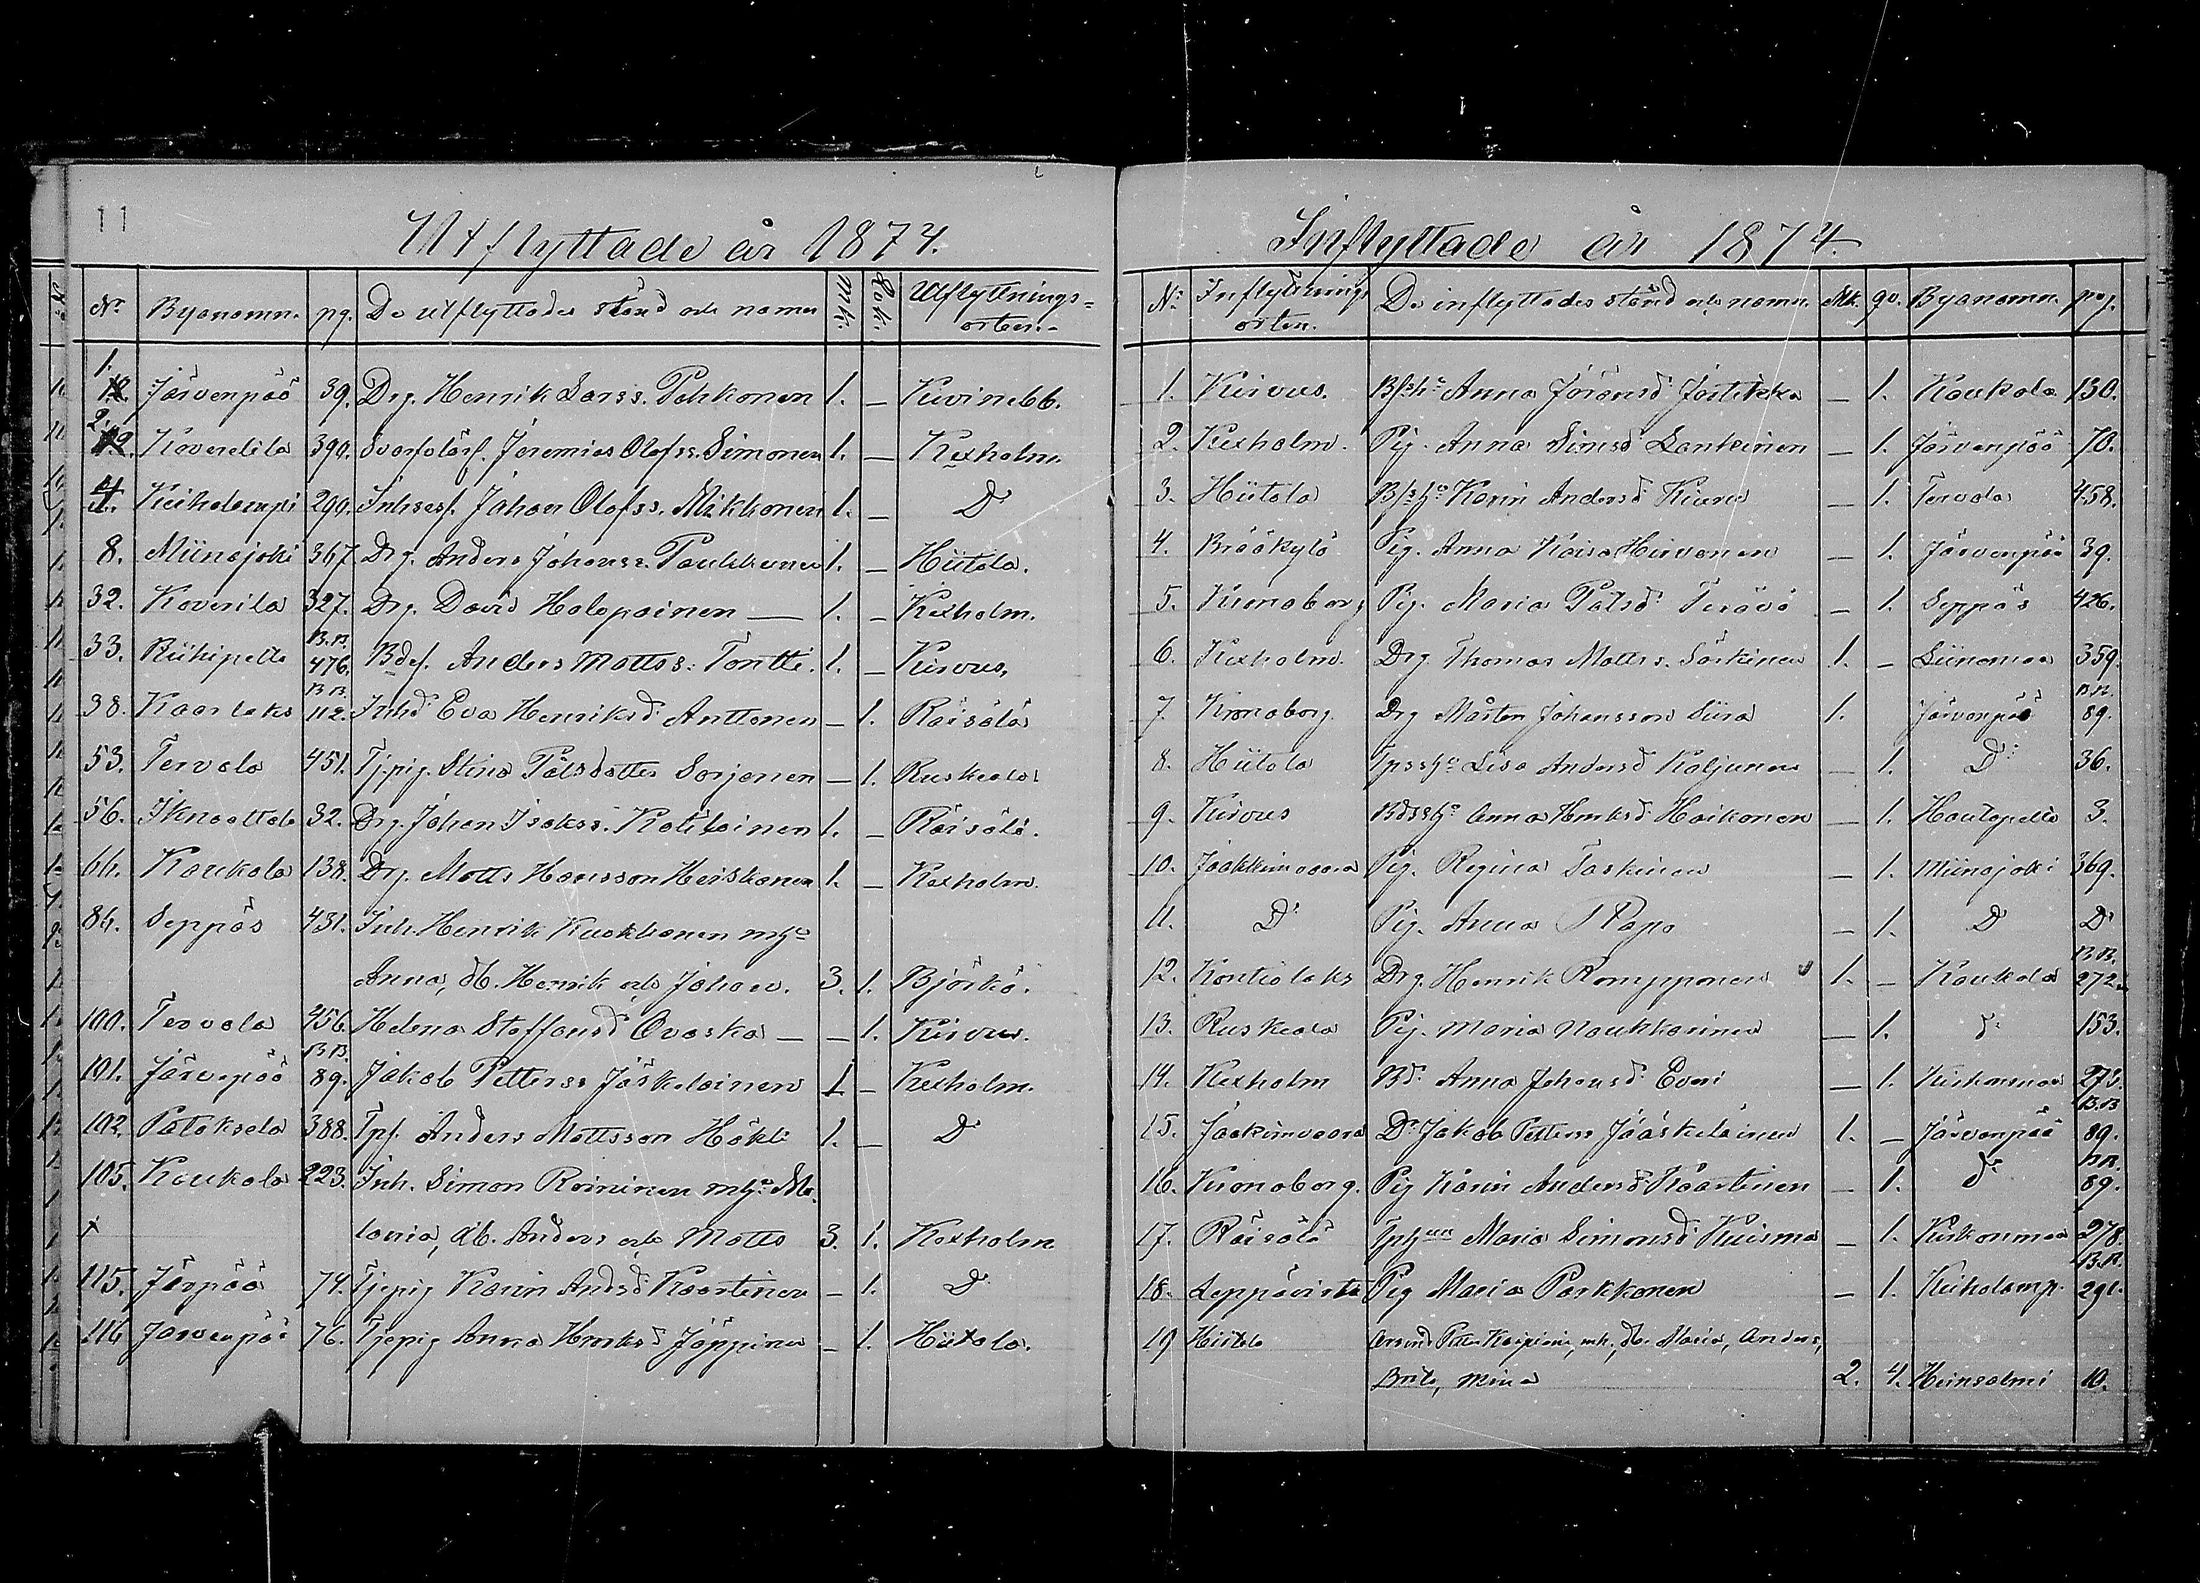 11
Utflyttade år 1874.
No Byanamn. pg. De utflyttades stånd och namn Mk. Qv.k. Utflyttnings=
orten.
1. Järvenpää 39. Drg. Henrik Larss. Pekkonen 1. — Kivinebb.
2. Koverila 390. Jeremias Olofss. Simonen 1. — Kexholm.
4. Kuiholampi 290. Inhses. Johan Olofss. Mikkonen 1. — Do
8. Miinajoki 367 Drg. Anders Johanss. Paukkunen 1. — Hiitola.
32. Koverila 327. Drg. David Halopainen — 1. — Kexholm.
33. Riihipelto B.B. 476. Bdes. Anders Mattss. Tontti. 1. — Kirvus.
38. Kaarlaks B.B. 112. Inhd Eva Henriksd Anttonen — 1. Räisälä
53. Tervola 451. Tj.pig. Stina Pålsdotter Sorjonen — 1. Ruskeala
56. Iknoattala 32. Drg. Johan Isakss. Kotilainen 1. — Räisälä.
64. Kaukola 138. Drg. Matts Hansson Heiskanen 1. — Kexholm.
86. Seppäs 431. Inh. Henrik Kuokkanen mho
Anna, db. Henrik och Johan. 3. 1. Björkö.
100. Tervola 456. Helena Staffansd Ovaska — — 1. Kirvus.
101. Järvepää B.B. 89. Jakob Petterss Jääskeläinen 1 — Kexholm.
102. Patoksela 388. Tpf. Anders Mattsson Häkli 1. — Do
105. Kaukola 223. Inh. Simon Roininen mho Ma-
x lania, db. Anders och Matts 3. 1. Kexholm
115. Järpää 74. Tjepig Karin Andsd Kaartinen — 1. Do
116 Järvenpää 76. Tjepig Anna Hnriksd Jäppinen — 1. Hiitola.
Inflyttade år 1874.
No Inflyttnings
orten. De inflyttades stånd och namn. Mk. qv. Byanamn. pag.
1. Kirvus. Anna Göransd Jortikka — 1. Kaukola 130.
2. Kexholm. Pig. Anna Simsd Lankinen — 1. Järvenpää 70.
3. Hiitola Karin Andersd Kiuru — 1. Tervola 458.
4. Brääkylä Pig. Anna Kaisa Hirvonen — 1. Järvenpää 39.
5. Kronoborg Pig. Maria Pålsd Terävä — 1. Seppäs 426.
6. Kexholm. Drg. Thomas Matts s. Särkinen 1. — Liinamaa 359.
7. Kronoborg Drg Mårten Johansson Siira 1. Järvenpää B.B. 89.
8. Hiitola Lisa Andersd Kaljunen — 1. Do 36.
9. Kirvus Anna Hnriksd Haikonen — 1. Hautapelto 3.
10. Jaakkimvaara Pig. Regina Taskinen — 1. Miinajoki 369.
11. Do Pig. Anna Papo — 1. Do Do
12. Kontiolaks Drg. Henrik Romppanen 1. — Kaukola B.B. 272.
13. Ruskeala Pig. Maria Naukkarinen — 1. do 153.
14. Kexholm Bd. Anna Johansd Evari — 1. Kiiskonmaa 273.
15. Jaakimvaara Dr Jakob Petterss Jääskeläinen 1. — Järvenpää B.B 89.
16. Kronoborg. Pig Karin Andersd Kaartinen — 1. do B.B. 89.
17. Räisälä Maria Simonsd Kuisma — 1. Kiiskonmaa 278.
18. Leppävirta Pig Maria Parkkonen — 1. Kuiholamp. B.B. 291.
19 Hiitola Petter Karpinen, mh., db. Maria, Anders,
Brita, Mina 2. 4. Heinsalmi 10.